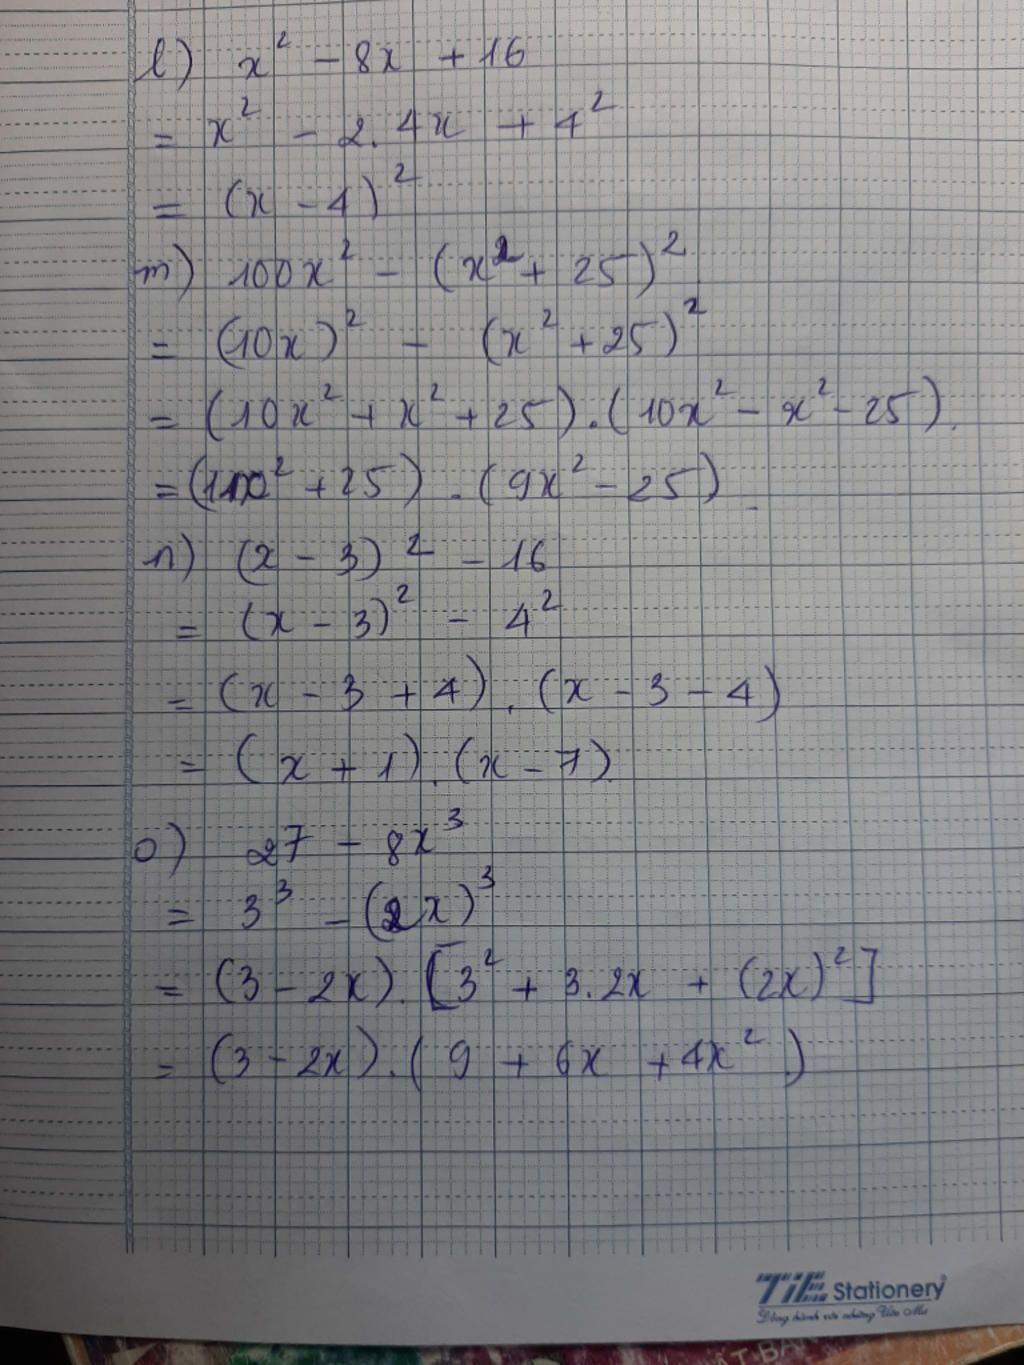 l) x² - 8x + 16
= x² - 2.4x + 4²
= (x - 4)²
m) 100x² - (x² + 25)²
= (10x)² - (x² + 25)²
= (10x² + x² + 25).(10x² - x² - 25).
= (11x² + 25).(9x² - 25)
n) (x - 3)² - 16
= (x - 3)² - 4²
= (x - 3 + 4).(x - 3 - 4)
= (x + 1).(x - 7)
o) 27 - 8x³
= 3³ - (2x)³
= (3 - 2x).[3² + 3.2x + (2x)²]
= (3 - 2x).(9 + 6x + 4x²)
TiE Stationery